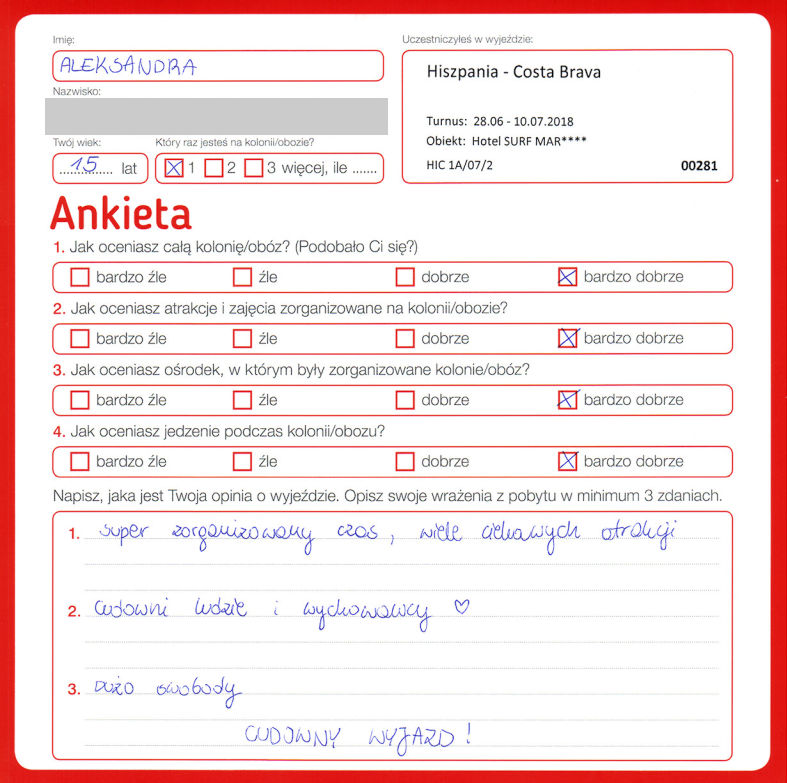 Imię:
Uczestniczyłeś w wyjeździe:
ALEKSANDRA
Hiszpania - Costa Brava
Nazwisko:
Turnus: 28.06 - 10.07.2018
Obiekt: Hotel SURF MAR****
HIC 1A/07/2 00281
Twój wiek: Który raz jesteś na kolonii/obozie?
15 lat 1 2 3 więcej, ile .......
Ankieta
1. Jak oceniasz całą kolonię/obóz? (Podobało Ci się?)
bardzo źle źle dobrze bardzo dobrze
2. Jak oceniasz atrakcje i zajęcia zorganizowane na kolonii/obozie?
bardzo źle źle dobrze bardzo dobrze
3. Jak oceniasz ośrodek, w którym były zorganizowane kolonie/obóz?
bardzo źle źle dobrze bardzo dobrze
4. Jak oceniasz jedzenie podczas kolonii/obozu?
bardzo źle źle dobrze bardzo dobrze
Napisz, jaka jest Twoja opinia o wyjeździe. Opisz swoje wrażenia z pobytu w minimum 3 zdaniach.
1. super zorganizowany czas, wiele ciekawych atrakcji
2. cudowni ludzie i wychowawcy ♡
3. Dużo swobody
CUDOWNY WYJAZD!